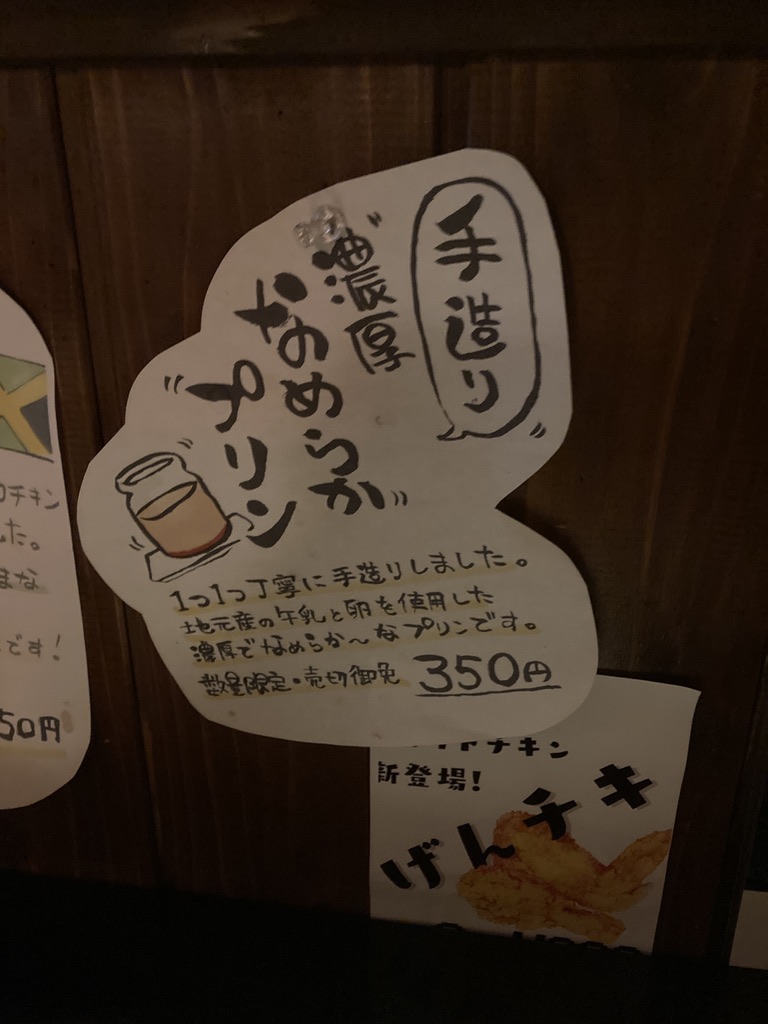 手造り
濃厚
なめらか
プリン
1つ1つ丁寧に手造りしました。
地元産の牛乳と卵を使用した
濃厚でなめらか〜なプリンです。
数量限定・売切御免 350円
チキン
た。
まな
です!
50円
チキン
新登場!
げんチキ